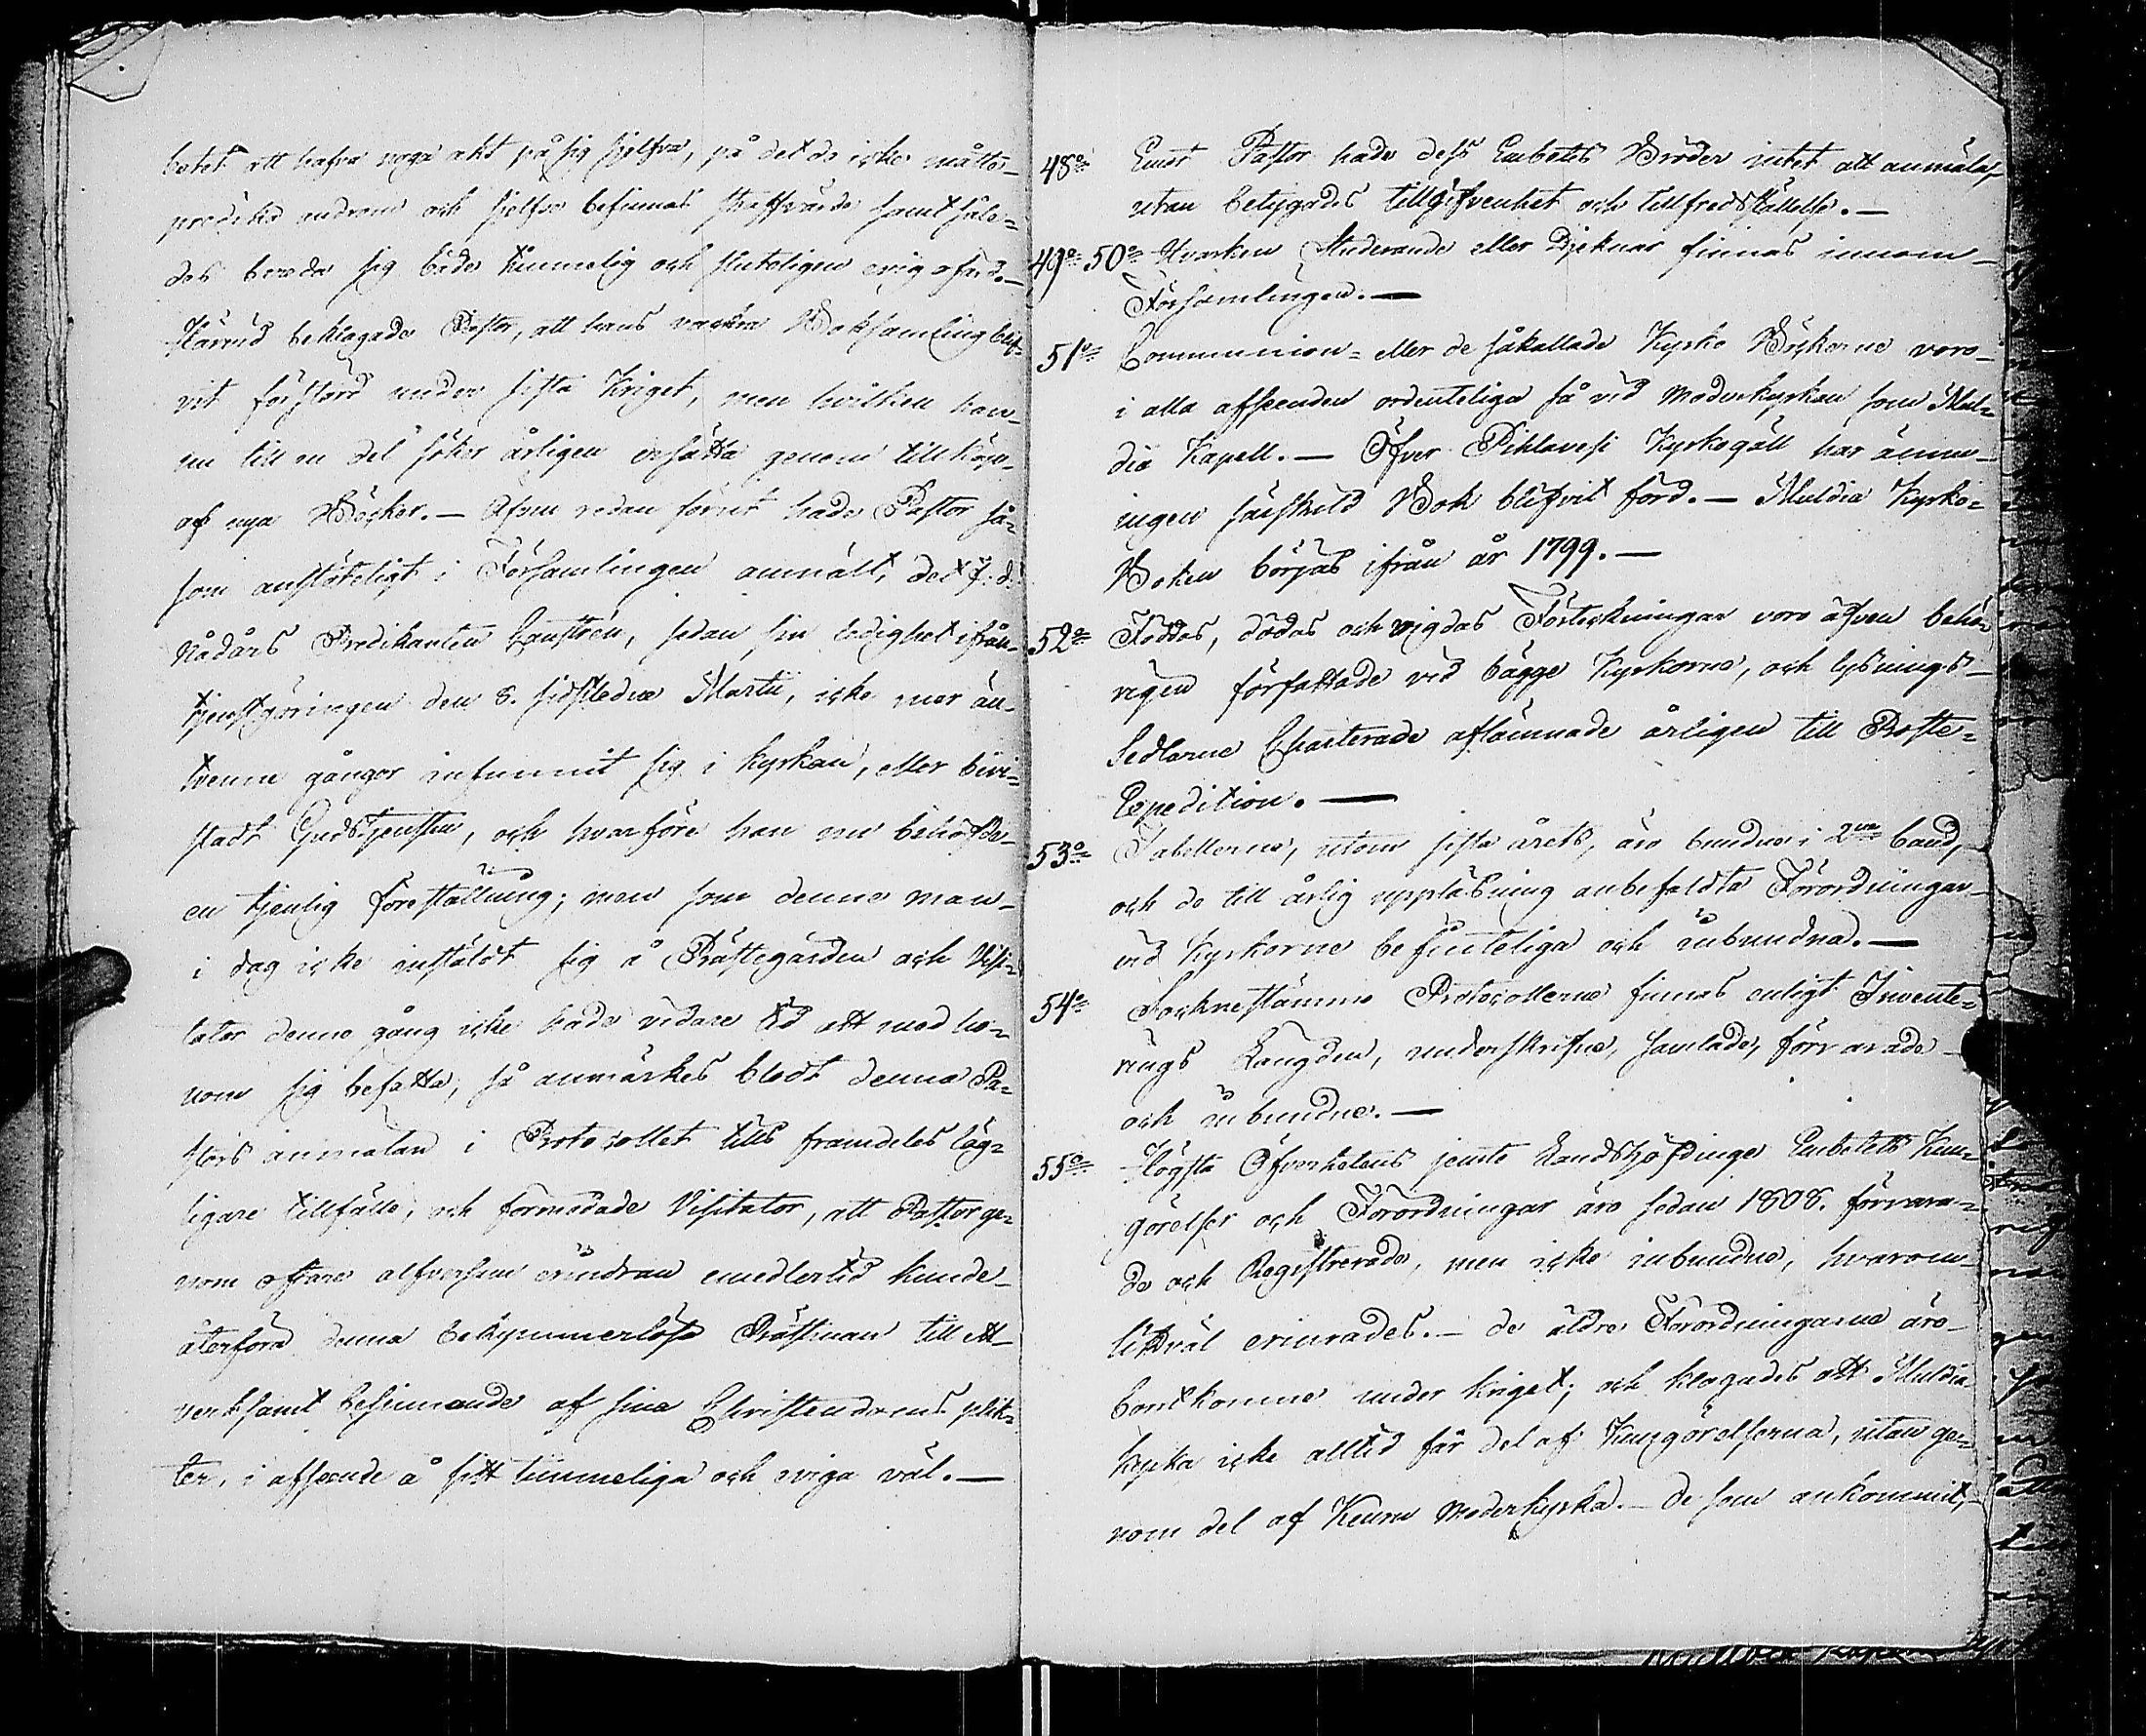 betet att hafva noga akt på sig sjelfva, på det de icke måtte
predika androm och sjelfve befinnas straffvärde samt såle=
des bereda sig både timmelig och sluteligen evig ofärd.—
Härvid beklagade Pastor, att hans vackra Boksamling blif=
vit förstörd under sista Kriget, men hvilken han
nu till en del söker årligen ersätta genom tillköp
af nya Böcker.— Äfven redan förut hade Pastor så=
som anstöteligt i Församlingen anmält, det f. d.
Nådårs Predikanten Constren, sedan sin ledighet ifrån
tjenstgöringen den 8. sidstledne Martii, icke mer än
tvenne gångor infunnit sig i kyrkan, eller bevi=
stadt Gudstjensten, och hvarföre han nu behöfde
en tjenlig föreställning; men som denne man
i dag icke instäldt sig å Prästegården och Visi=
tator denna gång icke hade vidare tid att med ho=
nom sig befatta, så anmärkes blodt denna Pa=
stors anmälan i Protocollet tills framdeles läg=
ligare tillfälle, och förmodade Visitator, att Pastor ge=
nom oftare alfversam erindran emedlertid kunde
återföra denna bekymmerlösa Prästman till ett
verksamt besinnande af sina Christendoms plik=
ter, i afseende å sitt timmeliga och eviga väl.—
48o Emot Pastor hade dess Embetes Bröder intet att anmäla,
utan betygades tillgifvenhet och tillfredsställelse.—
49o 50o Hvarken Studerande eller Djeknar finnas innom
Församlingen.—
51o Communion= eller de såkallade Kyrko Böckerne voro
i alla afseenden ordenteliga så vid Moderkyrkan som Mul=
dia Kapell.— Öfver Pihlavesi Kyrkogäll har ännu
ingen särskild Bok blifvit förd.— Muldia Kyrko=
Boken börjas ifrån år 1799.—
52o Föddas, dödas och vigdas Förteckningar voro äfven behö=
rigen författade vid bägge Kyrkorne, och lysnings=
Sedlarne Charterade aflämnade årligen till Proste=
Expedition.—
53o Tabellerne, utom sista årets, äro bundne i 2ne band,
och de till årlig uppläsning anbefaldta Förordningar
vid Kyrkorne befinteliga och inbundna.—
54o Sockne stämmo Protocollerne finnas enligt Invente=
rings Längden, underskrifne, samlade, förvarade
och inbundne.—
55o Högsta Öfverhetens jemte Landshöfdinge Embetets Kun=
görelser och Förordningar äro sedan 1808. förvara=
de och Registrerade, men icke inbundne, hvarom
likväl erinrades.— de äldre Förordningarna äro
bortkomne under kriget; och klagades att Muldia
kyrka icke alltid får del af Kungörelserna, utan ge=
nom del af Keuru Moderkyrka.— de som ankommit,